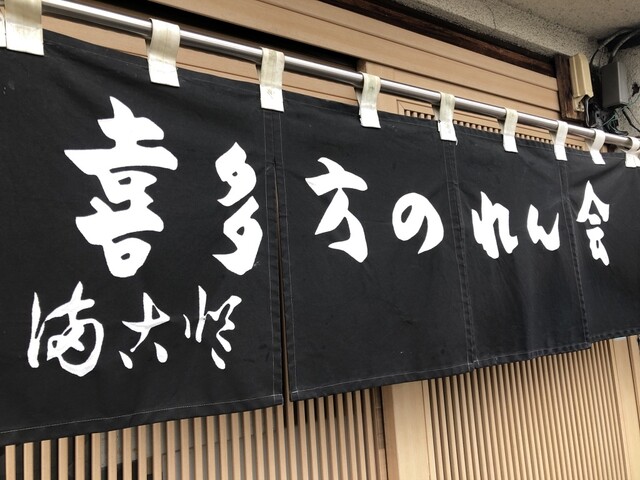 喜多方のれん会
満古登